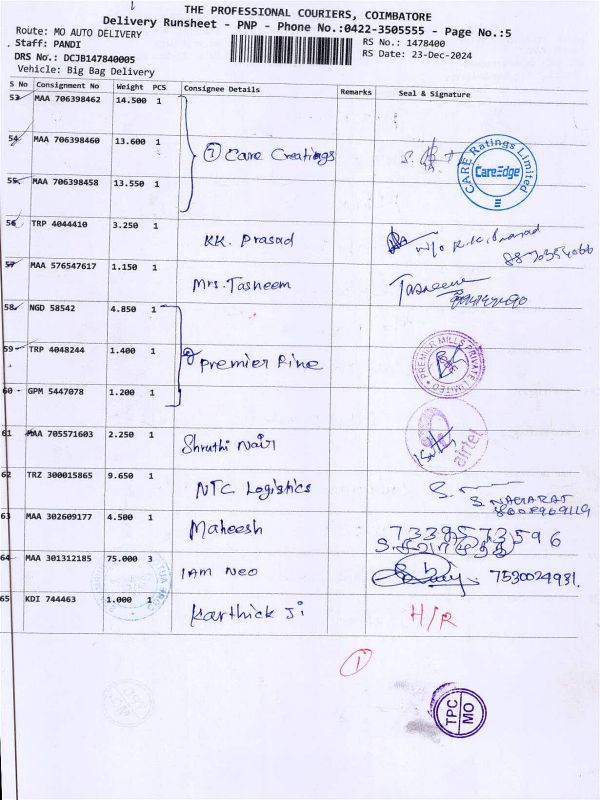 THE PROFESSIONAL COURIERS, COIMBATORE
Delivery Runsheet - PNP - Phone No.:0422-3505555 - Page No.:5
Route: MO AUTO DELIVERY
Staff: PANDI
DRS No.: DCJB147840005
Vehicle: Big Bag Delivery
RS No.: 1478400
RS Date: 23-Dec-2024
S No Consignment No Weight PCS Consignee Details Remarks Seal & Signature
53 MAA 706398462 14.500 1
54 MAA 706398460 13.600 1 Care Creatings CARE Ratings Limited CareEdge
55 MAA 706398458 13.550 1
56 TRP 4044410 3.250 1 KK. Prasad
57 MAA 576547617 1.150 1 Mrs. Tasneem Tasneem
58 NGD 58542 4.850 1
59 TRP 4048244 1.400 1 Premier Fine PREMIER MILLS PRIVATE LIMITED
60 GPM 5447078 1.200 1
61 MAA 705571603 2.250 1 Shruthi Nair airtel
62 TRZ 300015865 9.650 1 NTC Logistics S. NAGARAJ
63 MAA 302609177 4.500 1 Maheesh 7339573596
64 MAA 301312185 75.000 3 IAM Neo 7530024931.
65 KDI 744463 1.000 1 Karthick Ji H/R
1
TPC MO